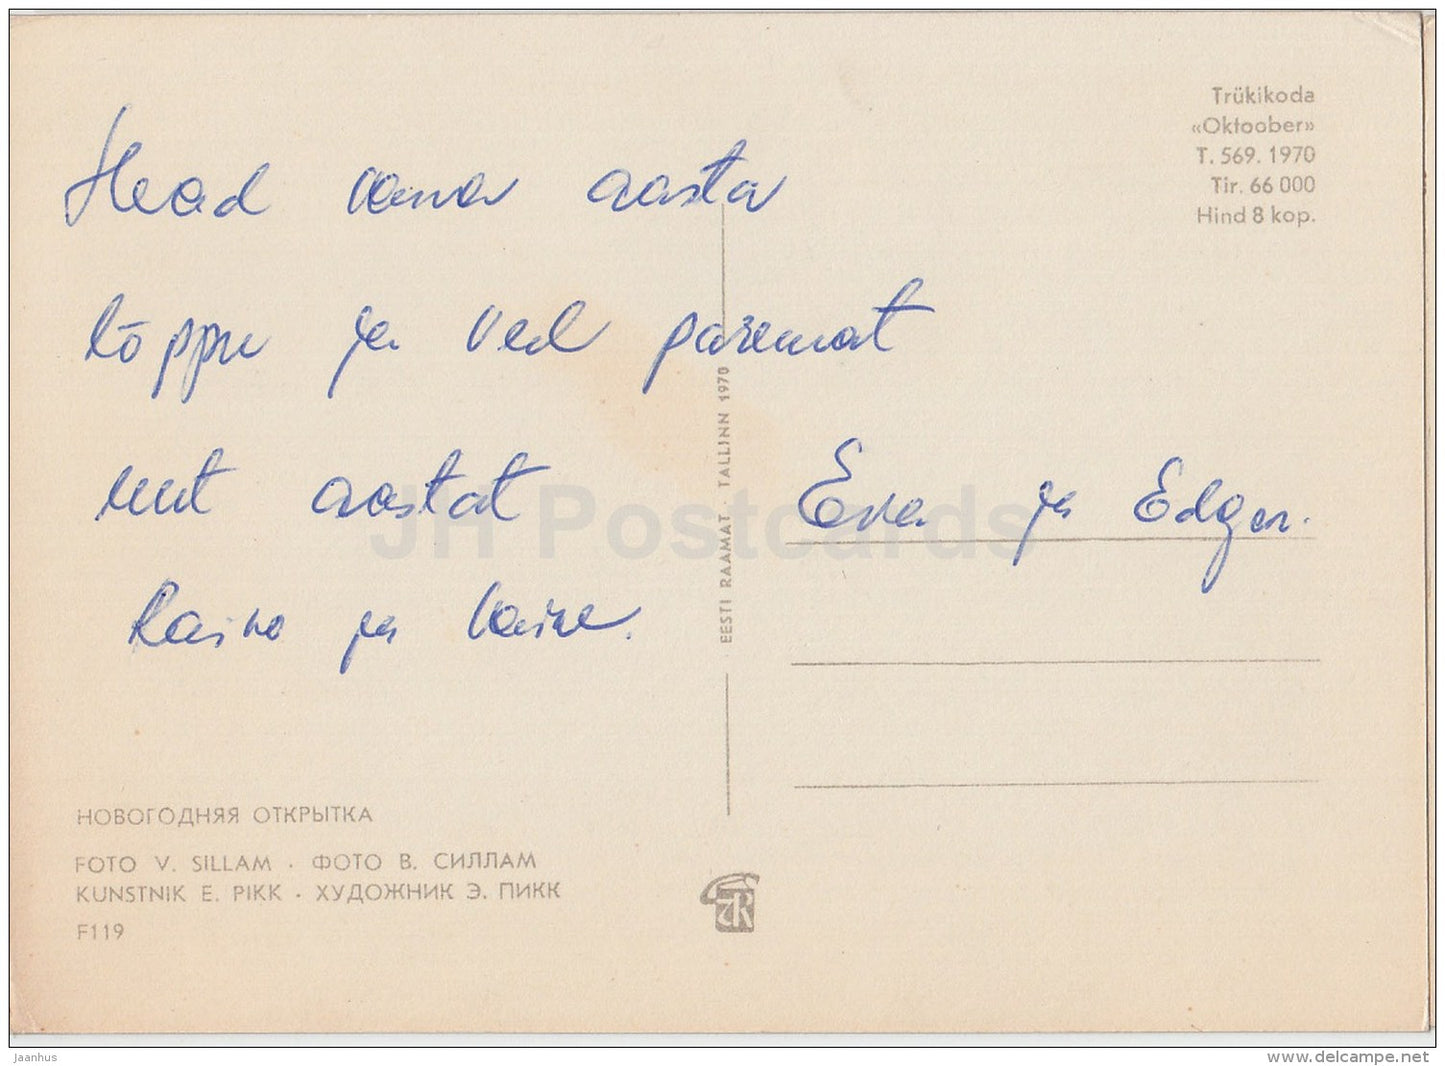 Trükikoda
«Oktoober»
T. 569. 1970
Tir. 66 000
Hind 8 kop.
Head vana aasta
lõppu ja veel paremat
uut aastat
Raivo ja Vaike.
Eva ja Edgar.
EESTI RAAMAT · TALLINN 1970
JH Postcards
НОВОГОДНЯЯ ОТКРЫТКА
FOTO V. SILLAM · ФОТО В. СИЛЛАМ
KUNSTNIK E. PIKK · ХУДОЖНИК Э. ПИКК
F119
jaanhus
www.delcampe.net